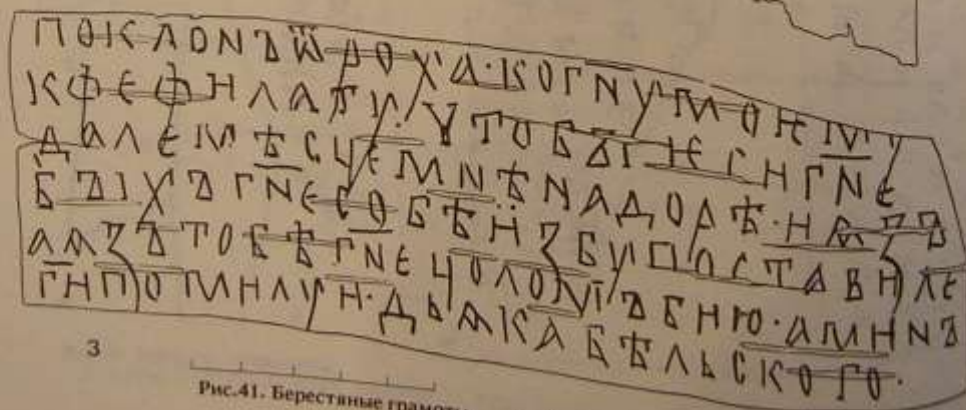 ПОКЛОNЪ Ѿ РОХА·КО ГNУ МОЕМУ
К ФЕФИЛАТУ·ЧТО БЪІ ЕСИ ГNЕ
ДАЛЕ МѢСЦЕ МNѢ NА ДОРѢ·И ѦЗЪ
БЪІХЪ ГNЕ СОБѢ ИЗБУ ПОСТАВИЛЕ
А ѦЗЪ ТОБѢ ГNЕ ЦОЛОМЪ БИЮ·АМИNЪ
ГИ ПОМИЛУИ·ДЬѦКА БѢЛЬСКОГО·
3
Рис.41. Берестяные грамоты